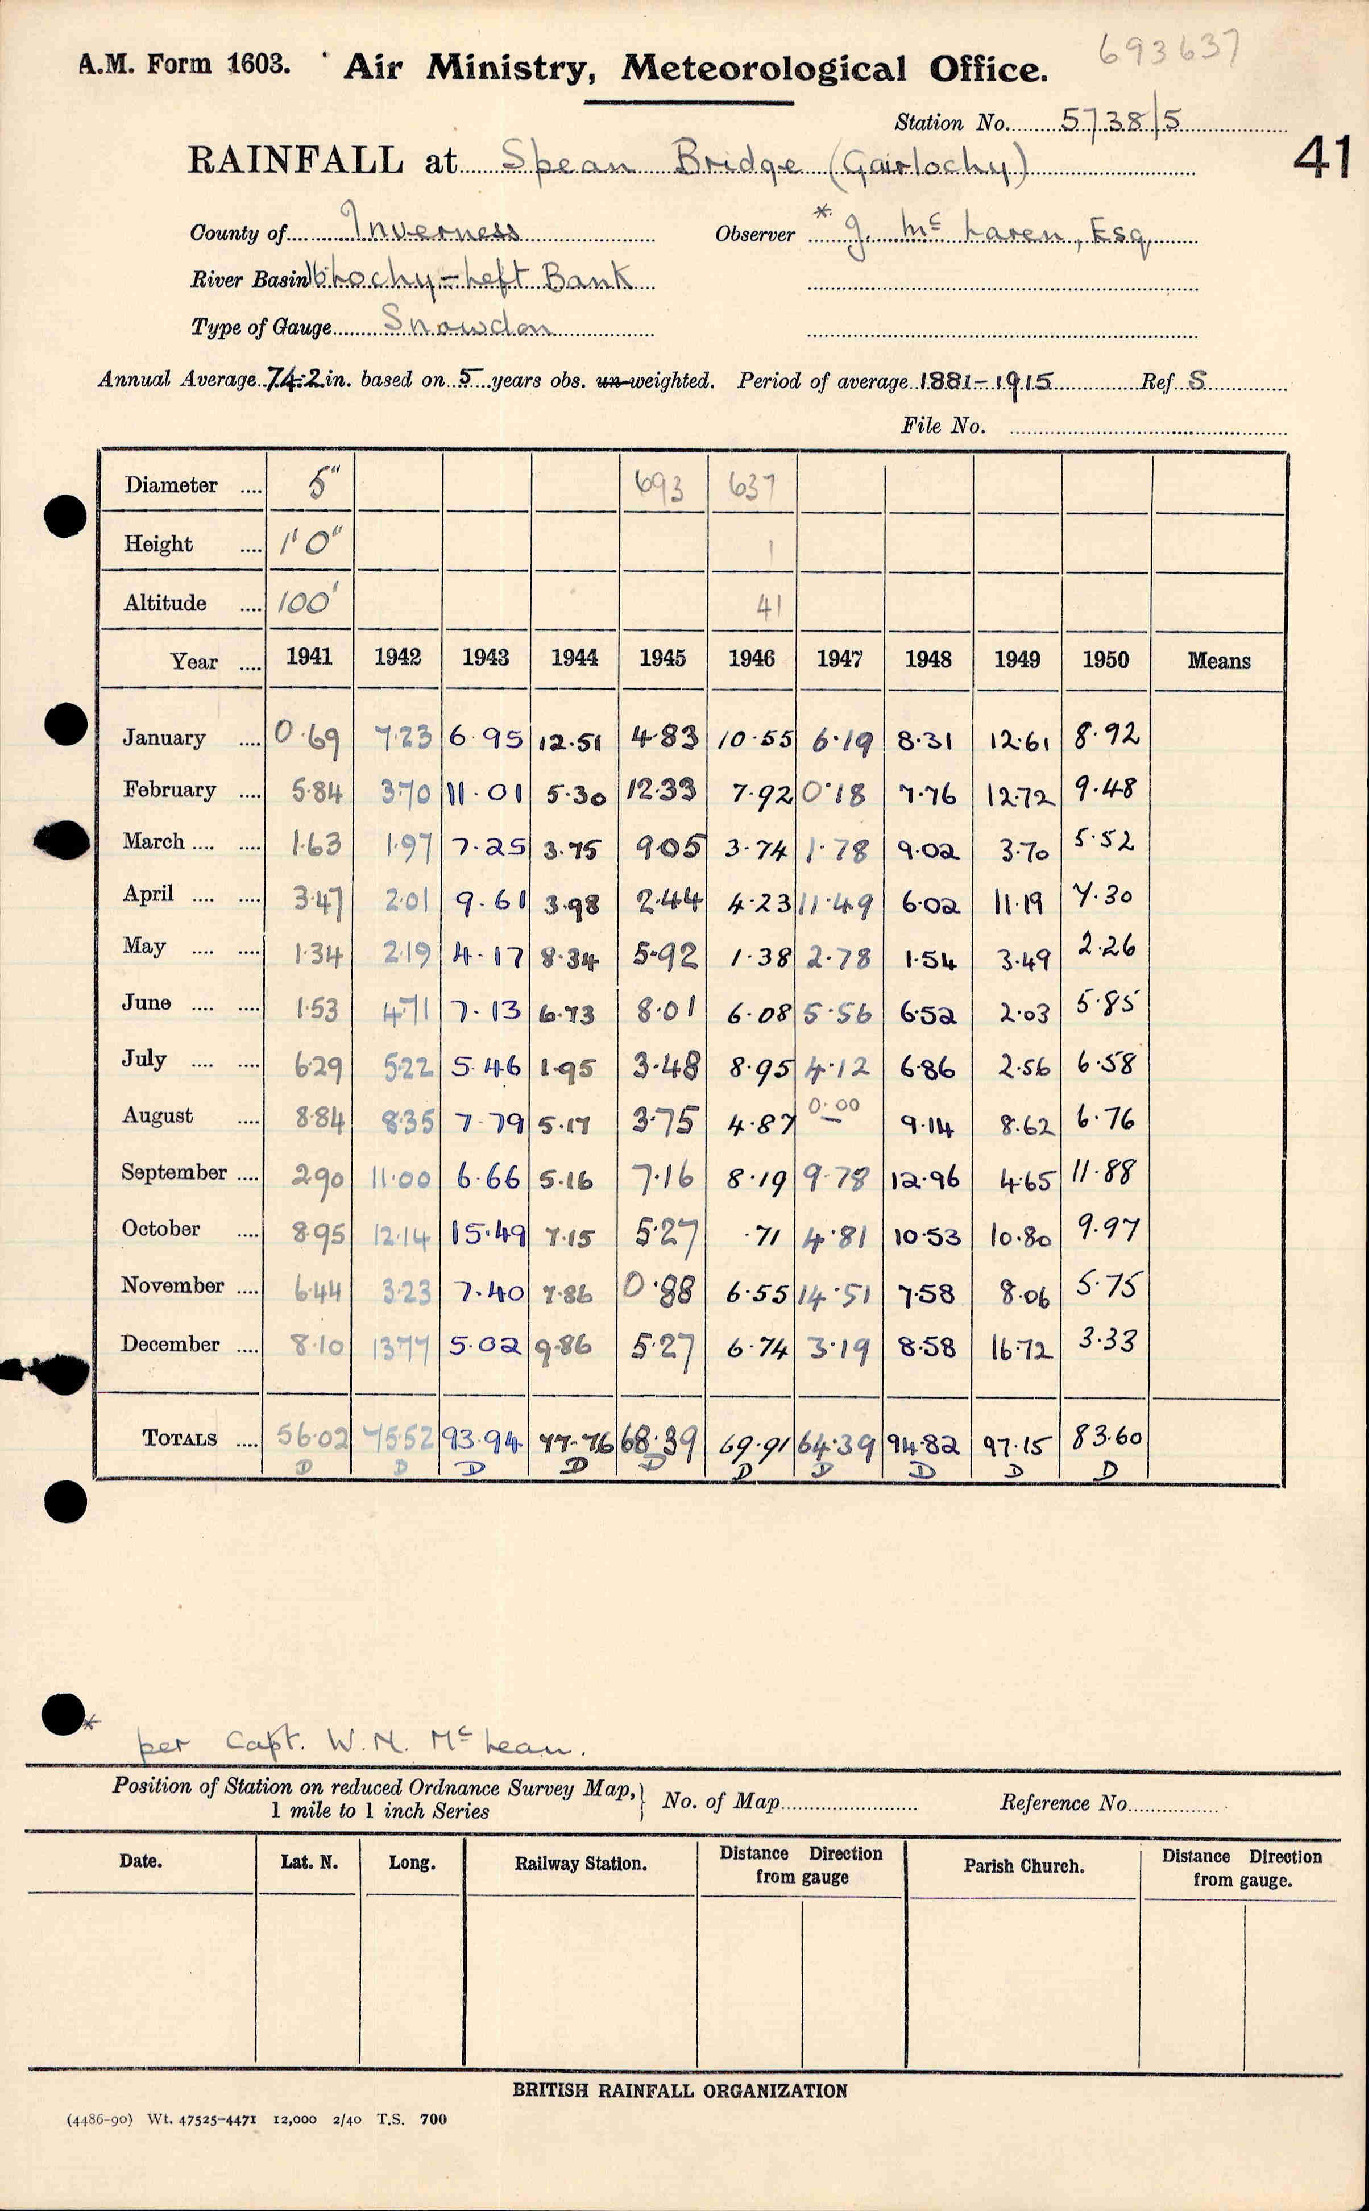 693637
A.M. Form 1603. Air Ministry, Meteorological Office.
Station No. 5738/5
41
RAINFALL at Spean Bridge (Gairlochy)
County of Inverness Observer * J. McLaren, Esq
River Basin Lochy-Left Bank
Type of Gauge Snowdon
Annual Average 74.2 in. based on 5 years obs. un-weighted. Period of average 1881-1915 Ref S
File No.
Diameter .... 5" 693 637
Height .... 1'0" 1
Altitude .... 100' 41
Year .... 1941 1942 1943 1944 1945 1946 1947 1948 1949 1950 Means
January .... 0.69 7.23 6.95 12.51 4.83 10.55 6.19 8.31 12.61 8.92
February .... 5.84 3.70 11.01 5.30 12.33 7.92 0.18 7.76 12.72 9.48
March .... .... 1.63 1.97 7.25 3.75 9.05 3.74 1.78 9.02 3.70 5.52
April .... .... 3.47 2.01 9.61 3.98 2.44 4.23 11.49 6.02 11.19 7.30
May .... .... 1.34 2.19 4.17 8.34 5.92 1.38 2.78 1.54 3.49 2.26
June .... .... 1.53 4.71 7.13 6.73 8.01 6.08 5.56 6.52 2.03 5.85
July .... .... 6.29 5.22 5.46 1.95 3.48 8.95 4.12 6.86 2.56 6.58
August .... 8.84 8.35 7.79 5.17 3.75 4.87 0.00 9.14 8.62 6.76
September .... 2.90 11.00 6.66 5.16 7.16 8.19 9.78 12.96 4.65 11.88
October .... 8.95 12.14 15.49 7.15 5.27 .71 4.81 10.53 10.80 9.97
November .... 6.44 3.23 7.40 7.86 0.88 6.55 14.51 7.58 8.06 5.75
December .... 8.10 13.77 5.02 9.86 5.27 6.74 3.19 8.58 16.72 3.33
TOTALS .... 56.02 75.52 93.94 77.76 68.39 69.91 64.39 94.82 97.15 83.60
D D D D D D D D D D
* per Capt. W.N. McLean.
Position of Station on reduced Ordnance Survey Map, 1 mile to 1 inch Series } No. of Map Reference No.
Date. Lat. N. Long. Railway Station. Distance Direction from gauge Parish Church. Distance Direction from gauge.
BRITISH RAINFALL ORGANIZATION
(4486-90) Wt. 47525-4471 12,000 2/40 T.S. 700